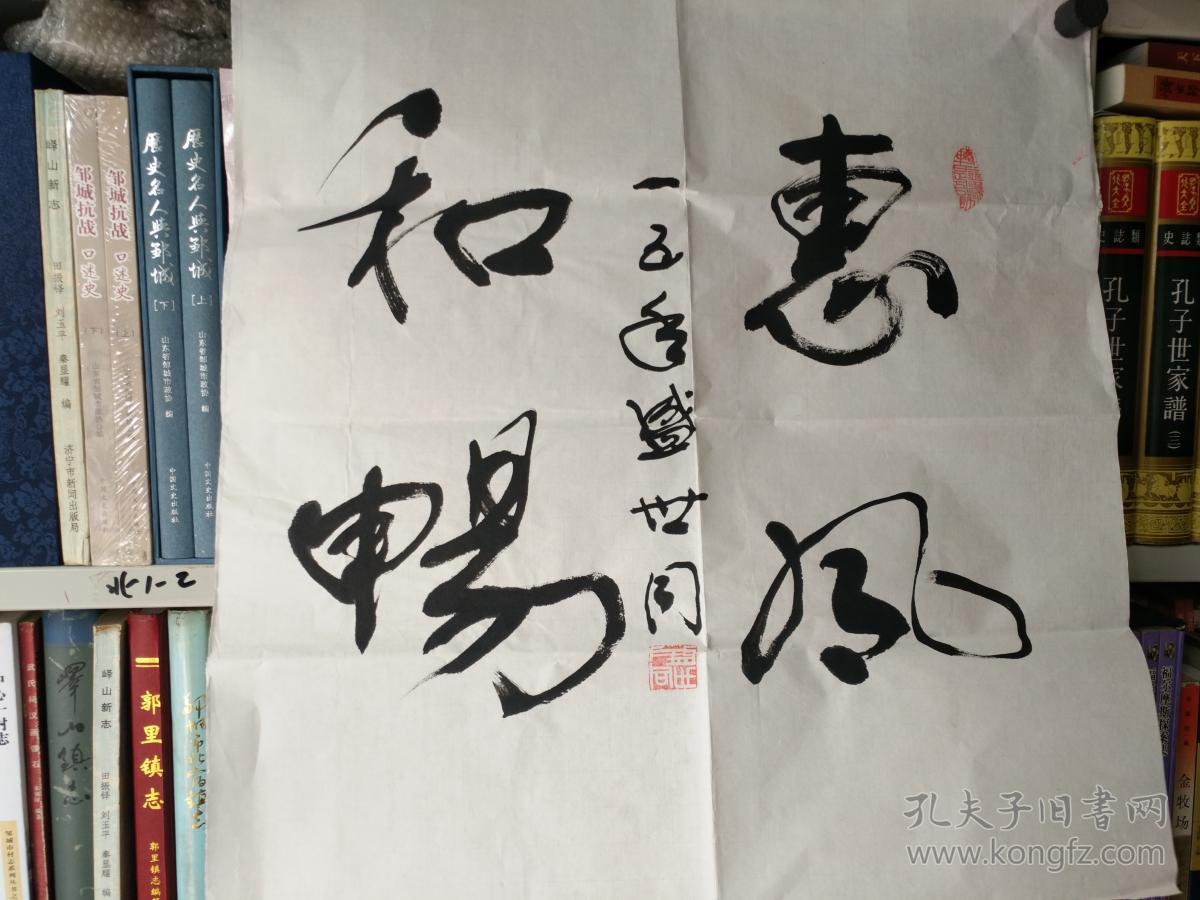 惠风
和暢
一五年盛世同
峄山新志
田振铎 刘玉平 秦显耀 编
济宁市新闻出版局
邹城抗战口述史
(下)
邹城抗战口述史
(上)
歷史名人與鄒城
[下]
山东省邹城市政协 编
中国文史出版社
歷史名人與鄒城
[上]
山东省邹城市政协 编
中国文史出版社
史誌類
孔子世家譜
史誌類
孔子世家譜
(三)
北1-2
嶧山鎮志
峄山新志
田振铎 刘玉平 秦显耀 编
郭里镇志
福尔摩斯探案集
金牧场
孔夫子旧書网
www.kongfz.com